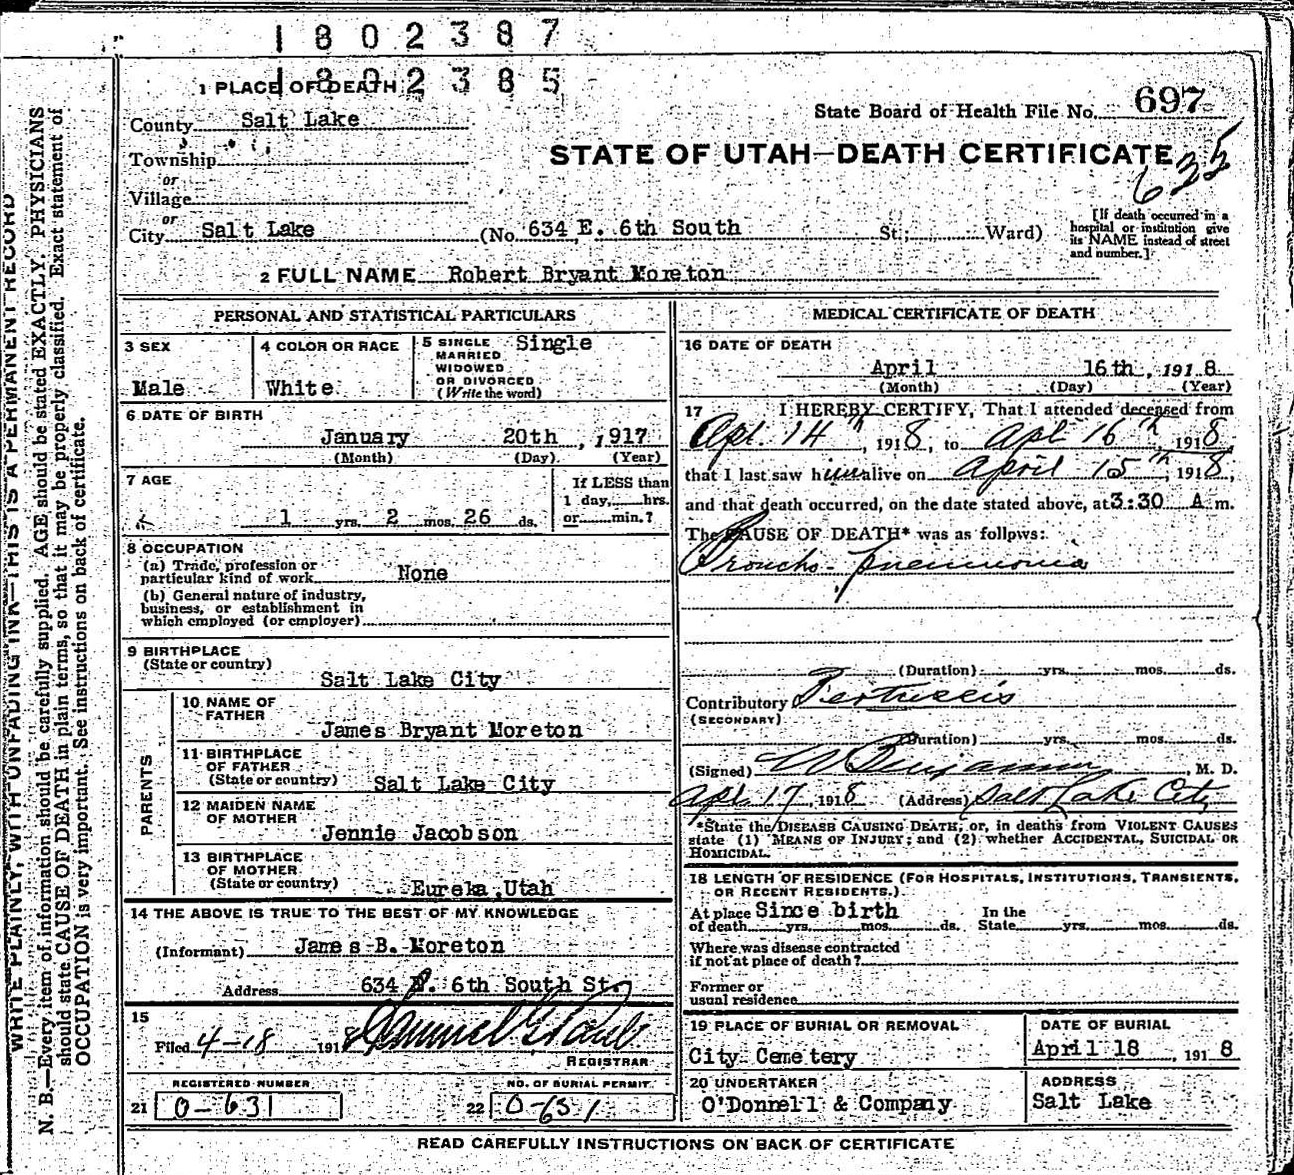 1802387
1802385
1 PLACE OF DEATH
State Board of Health File No. 697
County Salt Lake
STATE OF UTAH—DEATH CERTIFICATE
635
Township
or
Village
or
City Salt Lake (No. 634 E. 6th South St.; Ward)
[If death occurred in a
hospital or institution give
its NAME instead of street
and number.]
2 FULL NAME Robert Bryant Moreton
PERSONAL AND STATISTICAL PARTICULARS
3 SEX
Male
4 COLOR OR RACE
White
5 SINGLE
MARRIED
WIDOWED
OR DIVORCED
(Write the word)
Single
6 DATE OF BIRTH
January 20th, 1917
(Month) (Day) (Year)
7 AGE
1 yrs. 2 mos. 26 ds.
If LESS than
1 day, hrs.
or min.?
8 OCCUPATION
(a) Trade, profession or
particular kind of work None
(b) General nature of industry,
business, or establishment in
which employed (or employer)
9 BIRTHPLACE
(State or country)
Salt Lake City
PARENTS
10 NAME OF
FATHER
James Bryant Moreton
11 BIRTHPLACE
OF FATHER
(State or country) Salt Lake City
12 MAIDEN NAME
OF MOTHER
Jennie Jacobson
13 BIRTHPLACE
OF MOTHER
(State or country) Eureka, Utah
14 THE ABOVE IS TRUE TO THE BEST OF MY KNOWLEDGE
(Informant) James B. Moreton
Address 634 E. 6th South St.
15
Filed 4-18 1918 Samuel G. Paul
REGISTRAR
REGISTERED NUMBER
21 0-631
NO. OF BURIAL PERMIT
22 0-631
MEDICAL CERTIFICATE OF DEATH
16 DATE OF DEATH
April 16th, 1918
(Month) (Day) (Year)
17 I HEREBY CERTIFY, That I attended deceased from
Apr. 14th, 1918, to Apr 16th 1918,
that I last saw him alive on April 15th, 1918,
and that death occurred, on the date stated above, at 3:30 A m.
The CAUSE OF DEATH* was as follows:
Broncho-pneumonia
(Duration) yrs. mos. ds.
Contributory Pertussis
(SECONDARY)
(Duration) yrs. mos. ds.
(Signed) Benjamin M. D.
Apr. 17, 1918 (Address) Salt Lake City
*State the DISEASE CAUSING DEATH; or, in deaths from VIOLENT CAUSES
state (1) MEANS OF INJURY; and (2) whether ACCIDENTAL, SUICIDAL OR
HOMICIDAL.
18 LENGTH OF RESIDENCE (FOR HOSPITALS, INSTITUTIONS, TRANSIENTS,
OR RECENT RESIDENTS.)
At place Since birth In the
of death yrs. mos. ds. State yrs. mos. ds.
Where was disease contracted
if not at place of death?
Former or
usual residence
19 PLACE OF BURIAL OR REMOVAL
City Cemetery
DATE OF BURIAL
April 18, 1918
20 UNDERTAKER
O'Donnell & Company
ADDRESS
Salt Lake
READ CAREFULLY INSTRUCTIONS ON BACK OF CERTIFICATE
WRITE PLAINLY, WITH UNFADING INK—THIS IS A PERMANENT RECORD
N. B.—Every item of information should be carefully supplied. AGE should be stated EXACTLY. PHYSICIANS
should state CAUSE OF DEATH in plain terms, so that it may be properly classified. Exact statement of
OCCUPATION is very important. See instructions on back of certificate.